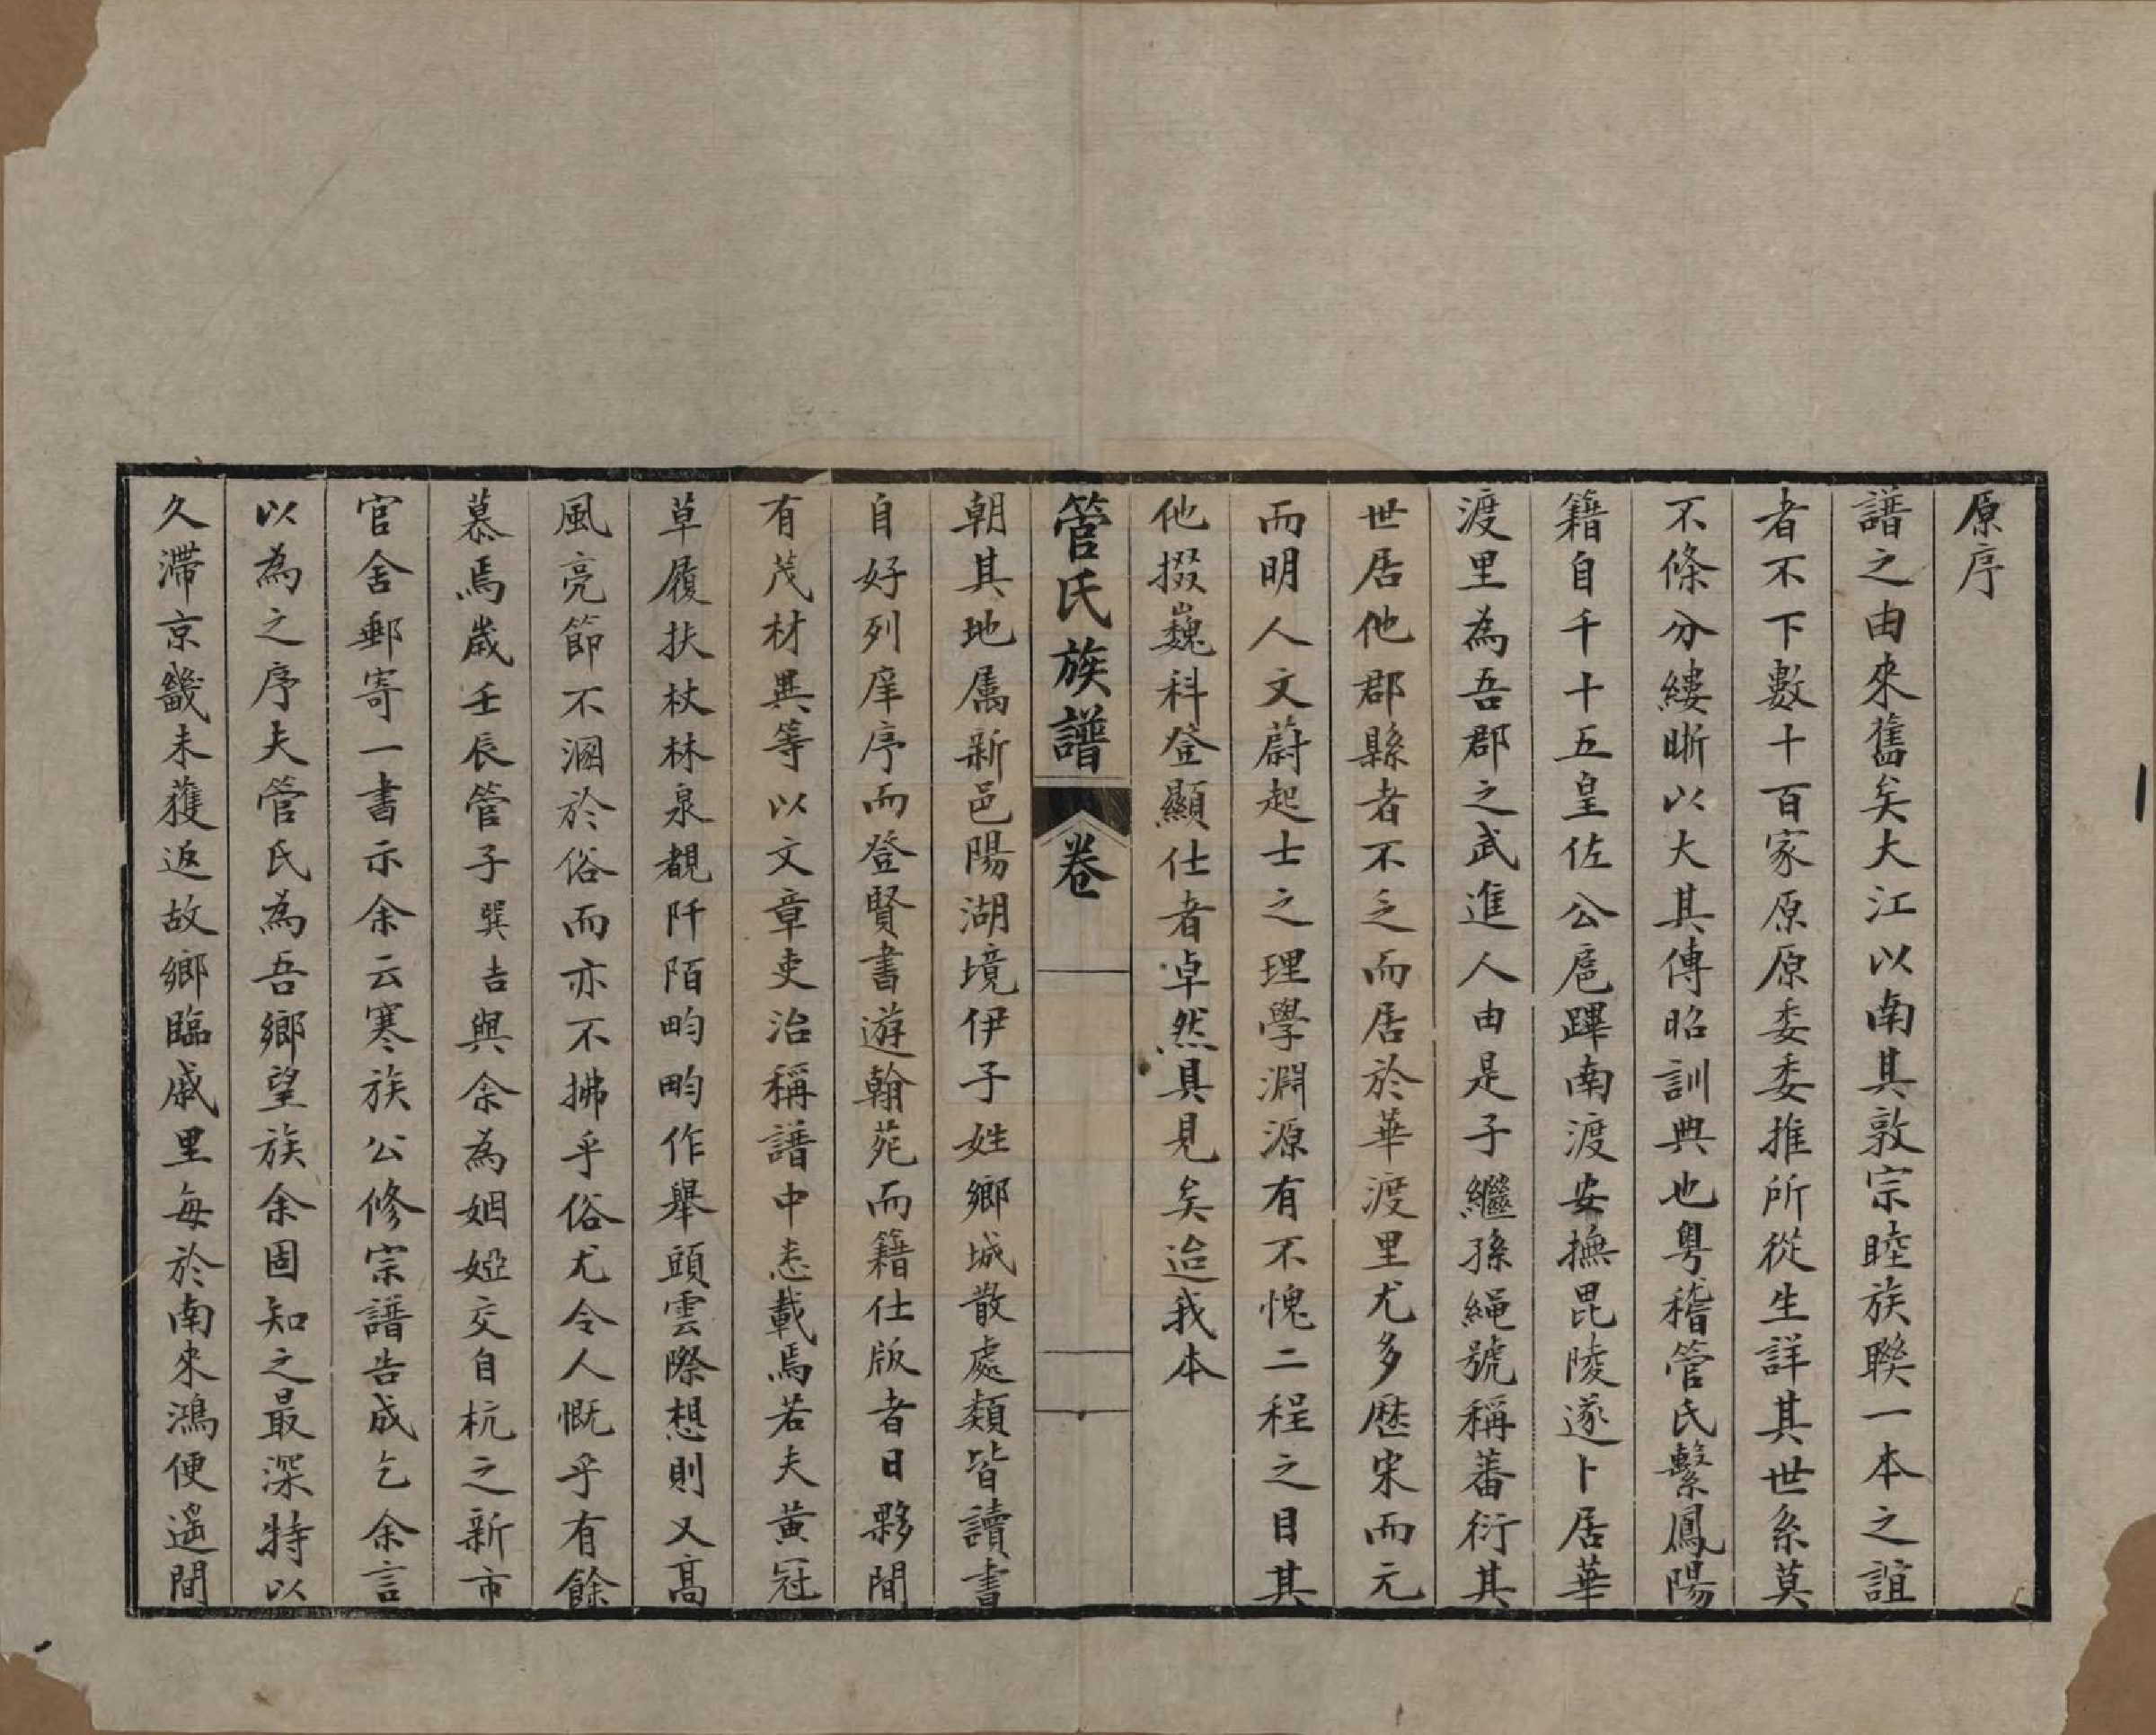 原序
譜之由來舊矣大江以南其敦宗睦族聯一本之誼
者不下數十百家原原委委推所從生詳其世系莫
不條分縷晰以大其傳昭訓典也粤稽管氏繫鳳陽
籍自千十五皇佐公扈蹕南渡安撫毘陵遂卜居華
渡里為吾郡之武進人由是子繼孫繩號稱蕃衍其
世居他郡縣者不乏而居於華渡里尤多歷宋而元
而明人文蔚起士之理學淵源有不愧二程之目其
他掇巍科登顯仕者卓然具見矣迨我本
管氏族譜 卷
朝其地属新邑陽湖境伊子姓鄉城散處類皆讀書
自好列庠序而登賢書遊翰苑而籍仕版者日夥間
有茂材異等以文章吏治稱譜中悉載焉若夫黄冠
草履扶杖林泉覩阡陌畇畇作舉頭雲際想則又高
風亮節不溷於俗而亦不拂乎俗尤令人慨乎有餘
慕焉歲壬辰管子巽吉與余為姻婭交自杭之新市
官舍郵寄一書示余云寒族公修宗譜告成乞余言
以為之序夫管氏為吾鄉望族余固知之最深特以
久滯京畿未獲返故鄉臨戚里每於南來鴻便遥聞